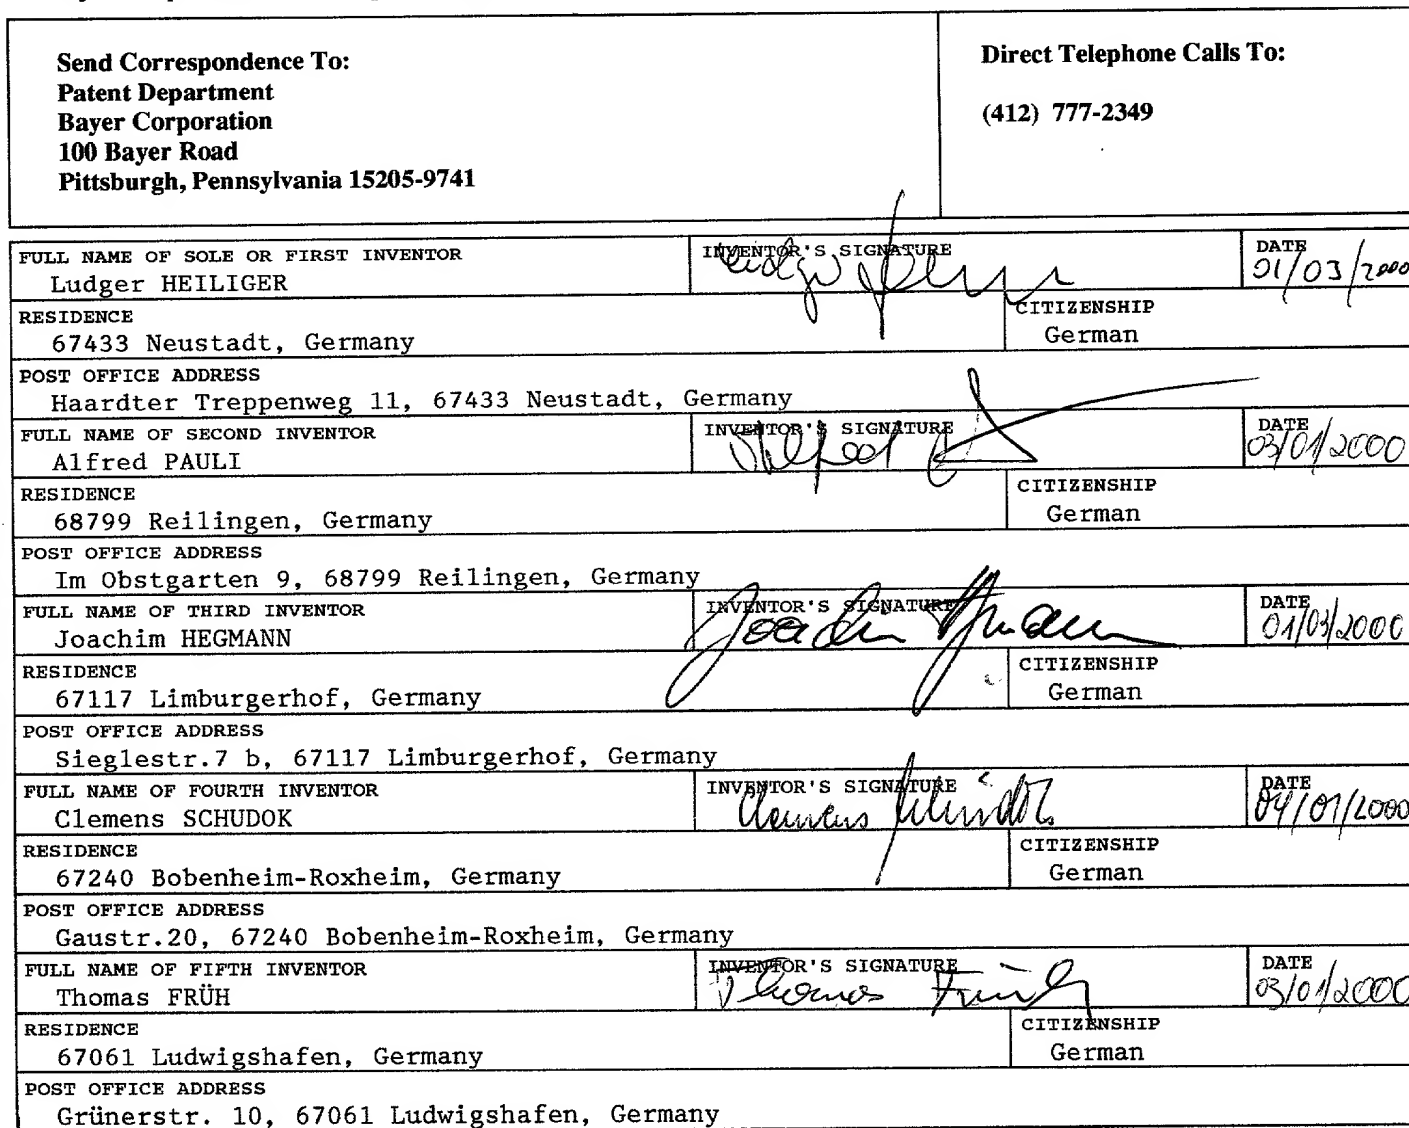 Send Correspondence To:
Patent Department
Bayer Corporation
100 Bayer Road
Pittsburgh, Pennsylvania 15205-9741
Direct Telephone Calls To:
(412) 777-2349
FULL NAME OF SOLE OR FIRST INVENTOR
Ludger HEILIGER
INVENTOR'S SIGNATURE
DATE
01/03/2000
RESIDENCE
67433 Neustadt, Germany
CITIZENSHIP
German
POST OFFICE ADDRESS
Haardter Treppenweg 11, 67433 Neustadt, Germany
FULL NAME OF SECOND INVENTOR
Alfred PAULI
INVENTOR'S SIGNATURE
Alfred
DATE
03/01/2000
RESIDENCE
68799 Reilingen, Germany
CITIZENSHIP
German
POST OFFICE ADDRESS
Im Obstgarten 9, 68799 Reilingen, Germany
FULL NAME OF THIRD INVENTOR
Joachim HEGMANN
INVENTOR'S SIGNATURE
Joachim Hegmann
DATE
01/03/2000
RESIDENCE
67117 Limburgerhof, Germany
CITIZENSHIP
German
POST OFFICE ADDRESS
Sieglestr.7 b, 67117 Limburgerhof, Germany
FULL NAME OF FOURTH INVENTOR
Clemens SCHUDOK
INVENTOR'S SIGNATURE
Clemens Schudok
DATE
04/01/2000
RESIDENCE
67240 Bobenheim-Roxheim, Germany
CITIZENSHIP
German
POST OFFICE ADDRESS
Gaustr.20, 67240 Bobenheim-Roxheim, Germany
FULL NAME OF FIFTH INVENTOR
Thomas FRÜH
INVENTOR'S SIGNATURE
Thomas Früh
DATE
03/01/2000
RESIDENCE
67061 Ludwigshafen, Germany
CITIZENSHIP
German
POST OFFICE ADDRESS
Grünerstr. 10, 67061 Ludwigshafen, Germany